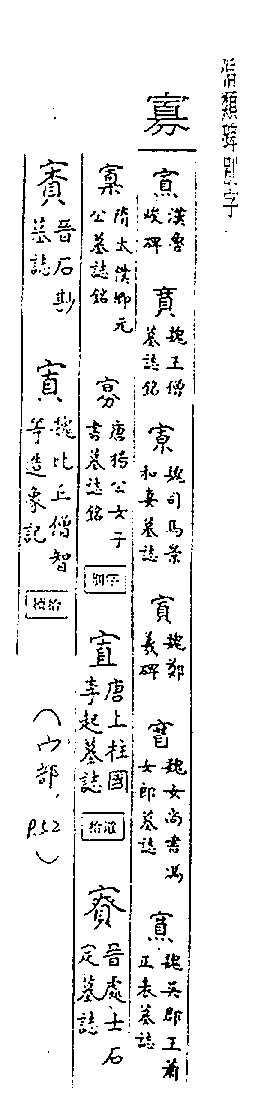 偏類碑別字
寡
漢魯峻碑
魏王僧墓誌銘
魏司馬景和妻墓誌
魏鄭羲碑
魏女尚書馮女郎墓誌
魏吳郡王蕭正表墓誌
隋太僕卿元公墓誌銘
唐楊公女子書墓誌銘
別字
唐上柱國李起墓誌
拾遺
晉處士石定墓誌
晉石尠墓誌
魏比丘僧智等造象記
續拾
(宀部, P.52)